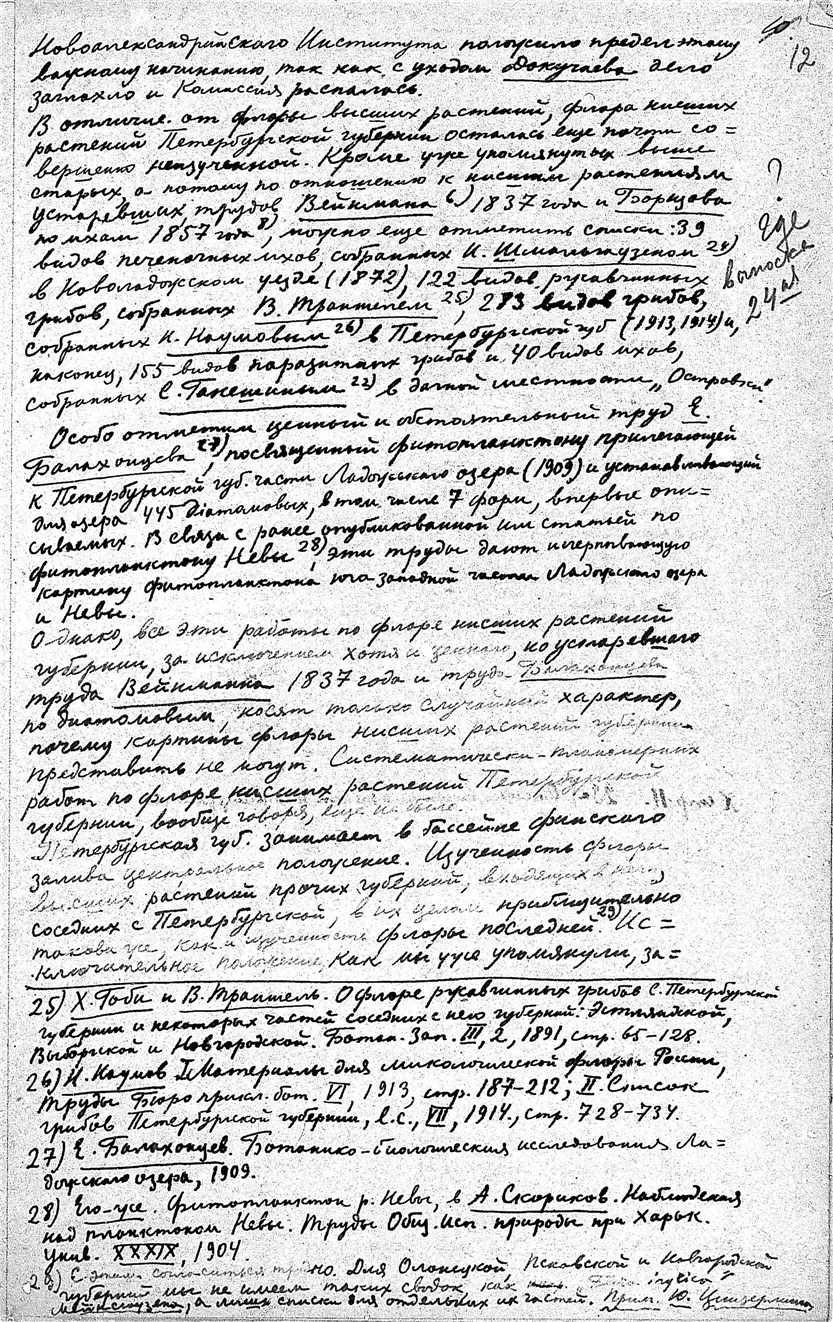 12
Новоалександрийскаго Института положило предел этому
важному начинанию, так как с уходом Докучаева дело
заглохло и Комиссия распалась.
В отличие от флоры высших растений, флора низших
растений Петербургской губернии осталась еще почти со=
вершенно неизученной. Кроме уже упомянутых выше
старых, а потому по отношению к низшим растениям
устаревших, трудов Вейнмана 6) 1837 года и Борщова
по мхам 1857 года 8), можно еще отметить списки: 39
видов печеночных мхов, собранных И. Шмальгаузеном 24)
в Новоладожском уезде (1872), 122 видов ржавчинных
грибов, собранных В. Траншелем 25), 283 видов грибов,
собранных Н. Наумовым 26) в Петербургской губ (1913, 1914) и,
наконец, 155 видов паразитных грибов и 40 видов мхов,
собранных С. Ганешиным 22) в дачной местности „Островки".
? Где
выноска
24ая
Особо отметим ценный и обстоятельный труд Е.
Балахонцева 27), посвященный фитопланктону прилегающей
к Петербургской губ. части Ладожскаго озера (1909) и устанавливающий
для озера 445 диатомовых, в том числе 7 форм, впервые опи=
сываемых. В связи с ранее опубликованной им статьей по
фитопланктону Невы 28), эти труды дают исчерпывающую
картину фитопланктона юго западной части Ладожскаго озера
и Невы.
Однако, все эти работы по флоре низших растений
губернии, за исключением хотя и ценнаго, но устаревшаго
труда Вейнманна 1837 года и труда Балахонцева
по диатомовым, носят только случайный характер,
почему картины флоры низших растений губернии
представить не могут. Систематически-планомерных
работ по флоре низших растений Петербургской
губернии, вообще говоря, еще не было.
Петербургская губ. занимает в бассейне финскаго
залива центральное положение. Изученность флоры
высших растений прочих губерний, входящих в него,
соседних с Петербургской, в их целом приблизительно
такова же, как и изученность флоры последней. 29) Ис=
ключительное положение, как мы уже упомянули, за=
25) Х. Гоби и В. Траншель. О флоре ржавчинных грибов С. Петербургской
губернии и некоторых частей соседних с нею губерний: Эстляндской,
Выборгской и Новгородской. Ботан. Зап. III, 2, 1891, стр. 65-128.
26) Н. Наумов I Материалы для микологической флоры России,
Труды Бюро прикл. бот. VI, 1913, стр. 187-212; II. Список
грибов Петербургской губернии, l.c., VII, 1914., стр. 728-734.
27) Е. Балахонцев. Ботанико-биологическия исследования Ла=
дожскаго озера, 1909.
28) Его-же. Фитопланктон р. Невы, в А. Скориков. Наблюдения
над планктоном Невы. Труды Общ. Исп. природы при Харьк.
унив. XXXIX, 1904.
29) С этим согласиться трудно. Для Олонецкой, Псковской и Новгородской
губерний мы не имеем таких сводок, как ingrica"
Мейнсгузена, а лишь списки для отдельных их частей. Прим. Ю. Цинзерлинга